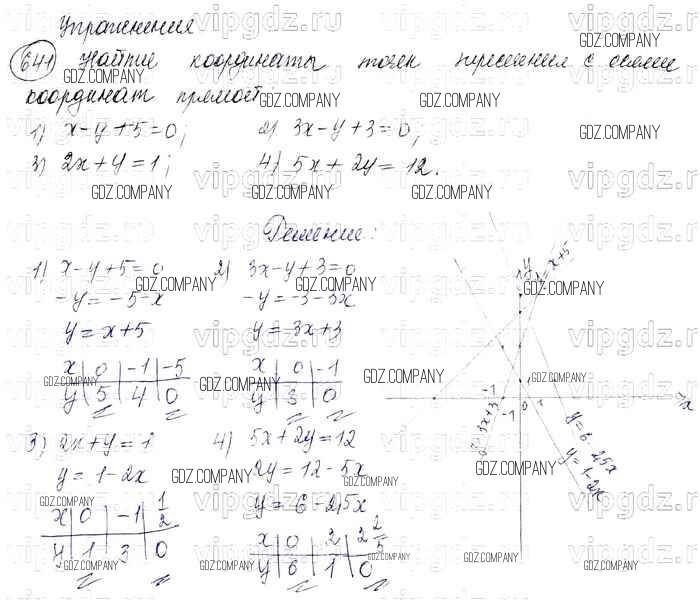 Упражнения
641 Найти координаты точек пересечения с осями
координат прямой:
1) x-y+5=0; 2) 3x-y+3=0;
3) 2x+y=1; 4) 5x+2y=12.
Решение:
1) x-y+5=0 2) 3x-y+3=0
-y=-5-x -y=-3-3x
y=x+5 y=3x+3
x | 0 | -1 | -5 x | 0 | -1
y | 5 | 4 | 0 y | 3 | 0
3) 2x+y=1 4) 5x+2y=12
y=1-2x 2y=12-5x
y=6-2,5x
x | 0 | -1 | 1/2 x | 0 | 2 | 2 2/5
y | 1 | 3 | 0 y | 6 | 1 | 0
y
y=x+5
-1
-1 0 1
x
y=3x+3
y=6-2,5x
y=1-2x
vipgdz.ru
GDZ.COMPANY